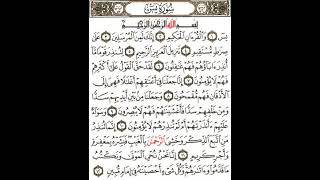 سورة يس
بسم الله الرحمن الرحيم
يس ۝ والقرءان الحكيم ۝ إنك لمن المرسلين ۝ على
صراط مستقيم ۝ تنزيل العزيز الرحيم ۝ لتنذر قوما ما
أنذر ءاباؤهم فهم غافلون ۝ لقد حق القول على أكثرهم
فهم لا يؤمنون ۝ إنا جعلنا في أعناقهم أغلالا فهي إلى
الأذقان فهم مقمحون ۝ وجعلنا من بين أيديهم سدا
ومن خلفهم سدا فأغشيناهم فهم لا يبصرون ۝ وسواء
عليهم ءأنذرتهم أم لم تنذرهم لا يؤمنون ۝ إنما تنذر
من اتبع الذكر وخشي الرحمن بالغيب فبشره بمغفرة
وأجر كريم ۝ إنا نحن نحي الموتى ونكتب
ما قدموا وءاثارهم وكل شيء أحصيناه في إمام مبين ۝